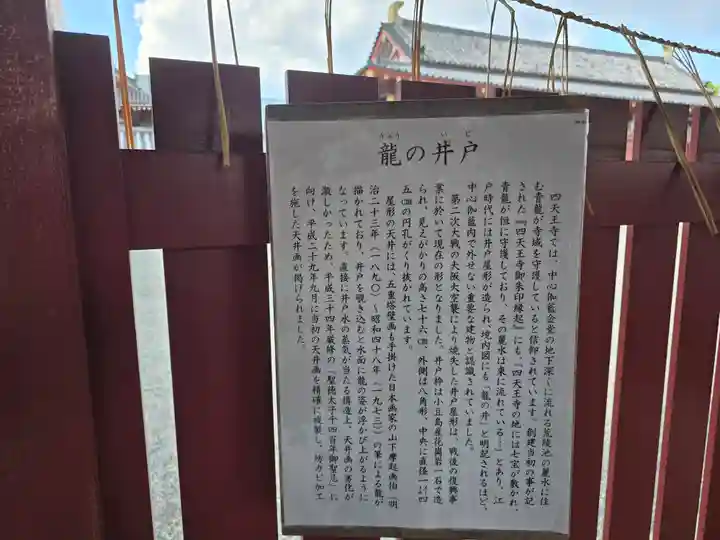 りゅう い ど
龍の井戸
四天王寺では、中心伽藍金堂の地下深くに流れる荒陵池の麗水に住
む青龍が寺域を守護していると信仰されています。創建当初の事が記
された『四天王寺御朱印縁起』にも、『四天王寺の地には七宝が敷かれ、
青龍が恒に守護しており、その麗水は東に流れている…』とあり、江
戸時代には井戸屋形が造られ、境内図にも「龍の井」と明記されるほど、
中心伽藍内で外せない重要な建物と認識されていました。
第二次大戦の大阪大空襲により焼失した井戸屋形は、戦後の復興事
業に於いて現在の形となりました。井戸枠は小豆島産花崗岩一石で造
られ、見えがかりの高さ七十六㎝、外側は八角形、中央に直径一一四・
五㎝の円孔がくり抜かれています。
屋形の天井には、五重塔壁画も手掛けた日本画家の山下摩起画伯(明
治二十三年(一八九〇)～昭和四十八年(一九七三))の筆による龍が
描かれており、井戸を覗き込むと水面に龍の姿が浮かび上がるように
なっています。直接に井戸水の蒸気が当たる構造上、天井画の劣化が
激しかったため、平成三十四年厳修の「聖徳太子千四百年御聖忌」に
向け、平成二十九年九月に当初の天井画を精確に複製し、防カビ加工
を施した天井画が掲げられました。